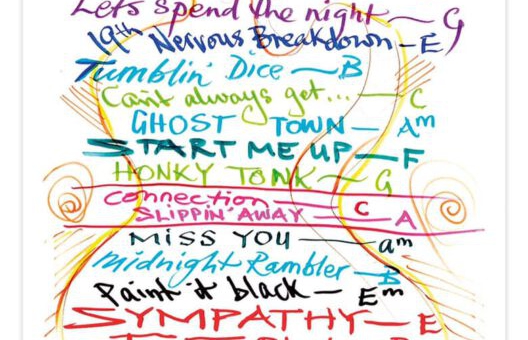 Let's spend the night — G
19th Nervous Breakdown — E
Tumblin' Dice — B
Can't always get... — C
GHOST TOWN — Am
START ME UP — F
HONKY TONK — G
Connection — C
SLIPPIN' AWAY — A
MISS YOU — am
Midnight Rambler — B
Paint it black — Em
SYMPATHY — E